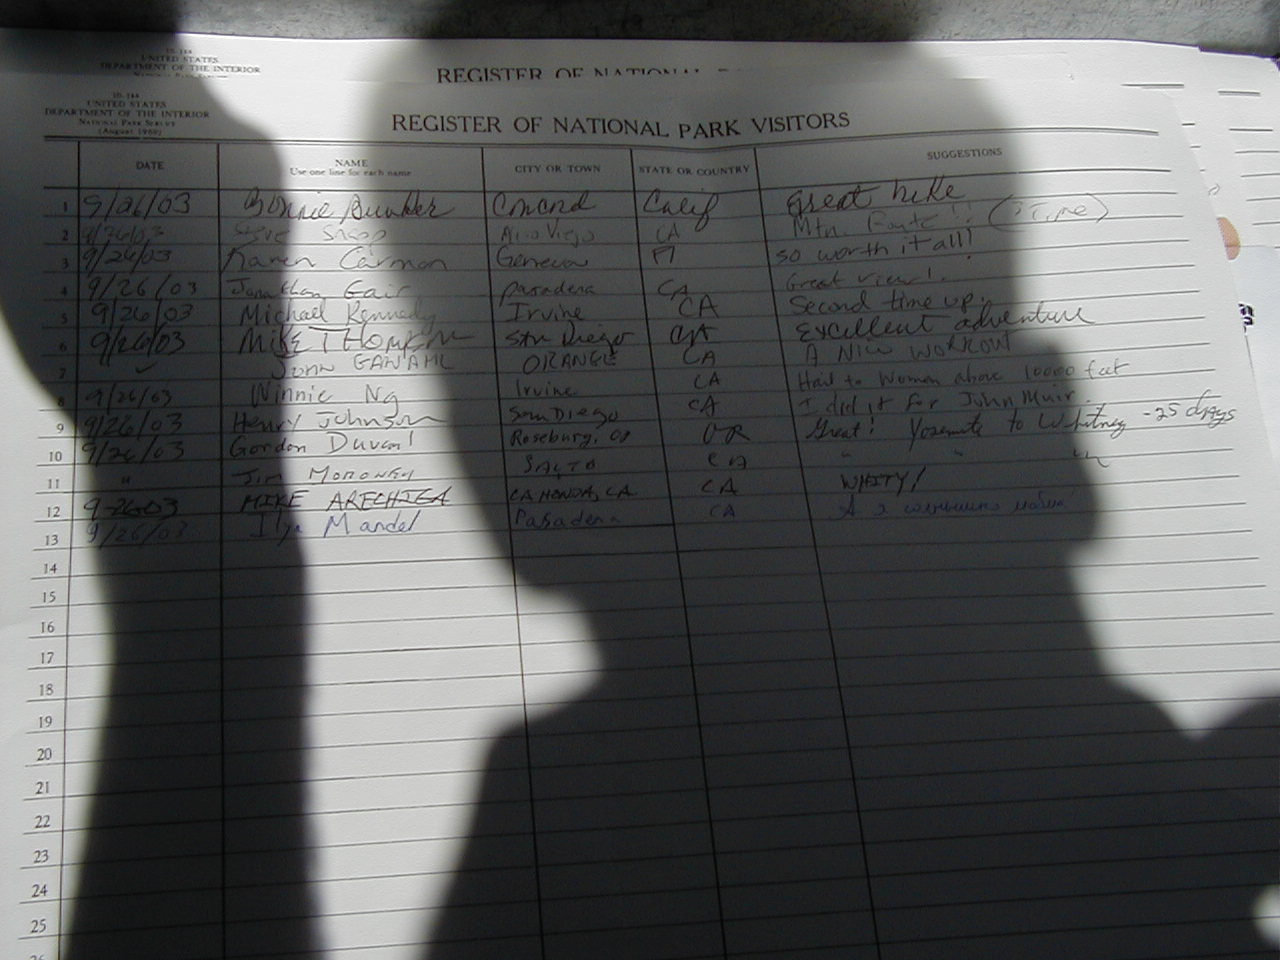 10-144
UNITED STATES
DEPARTMENT OF THE INTERIOR
REGISTER OF NATIONAL
10-144
UNITED STATES
DEPARTMENT OF THE INTERIOR
NATIONAL PARK SERVICE
(August 1960)
REGISTER OF NATIONAL PARK VISITORS
DATE NAME CITY OR TOWN STATE OR COUNTRY SUGGESTIONS
Use one line for each name
1 9/26/03 Bonnie Concord Calif Great hike
2 9/26/03 Steve Aliso Viejo CA Mtn. !! (2 Time)
3 9/26/03 Karen Carmon Geneva Fl so worth it all!
4 9/26/03 Jonathan Gair Pasadena CA Great view!
5 9/26/03 Michael Kennedy Irvine CA Second time up.
6 9/26/03 Mike San Diego CA Excellent adventure
7 John GANAHL ORANGE CA A Nice workout
8 9/26/03 Winnie Ng Irvine CA Hail to Women above 10000 feet
9 9/26/03 Henry Johnson San Diego CA I did it For John Muir.
10 9/26/03 Gordon Roseburg, OR OR Great! Yosemite to Whitney -25 days
11 " Jim MORONEY CA " " "
12 9-26-03 MIKE ARECHIGA LA HONDA, CA. CA WHITY!
13 9/26/03 Ilya Mandel Pasadena CA А я
14
15
16
17
18
19
20
21
22
23
24
25
26